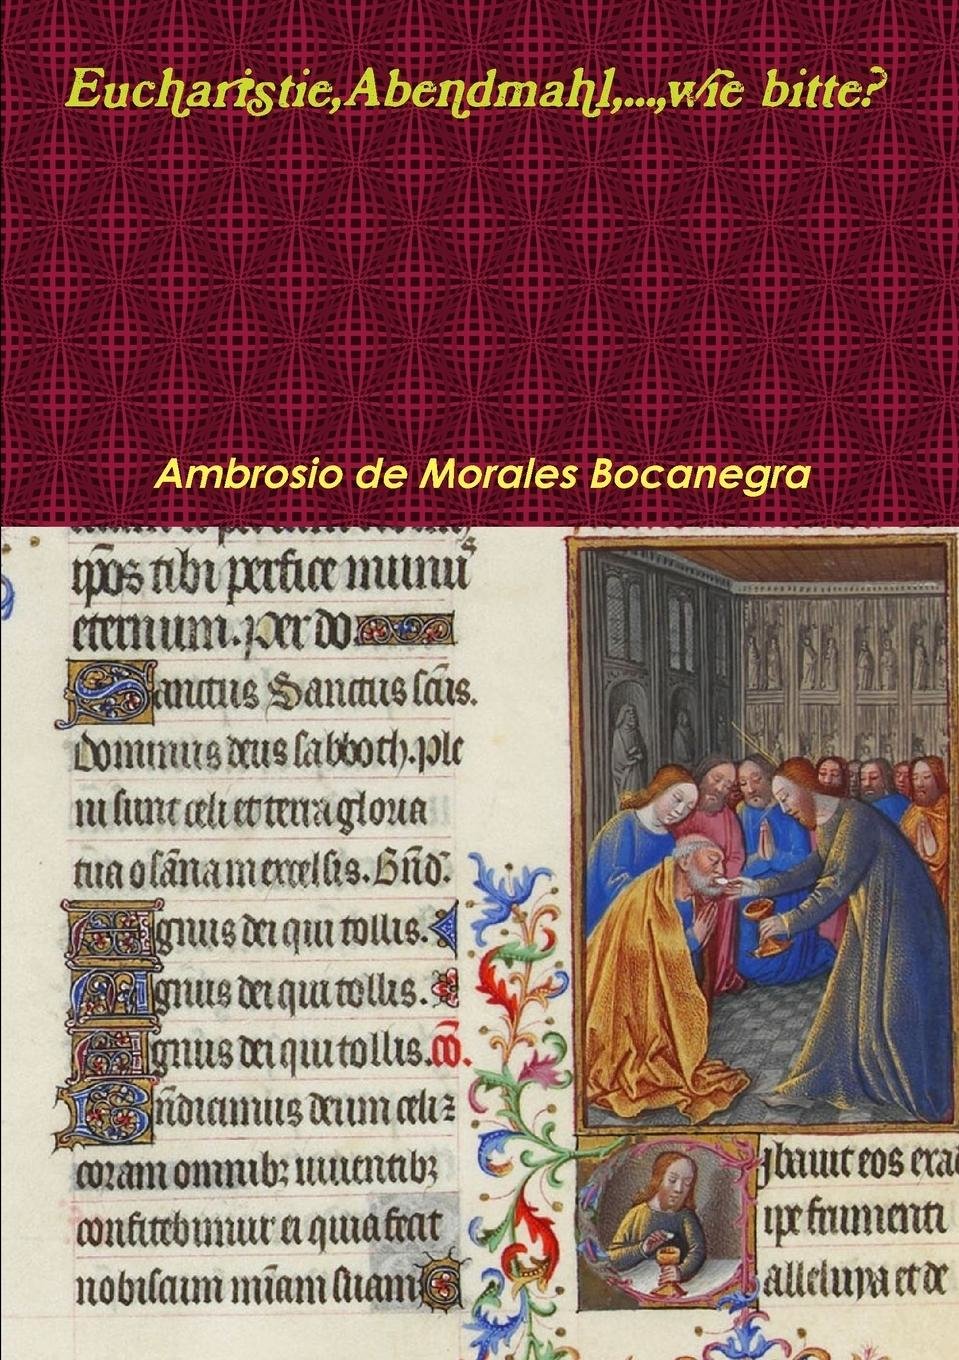 Eucharistie,Abendmahl,...,wie bitte?
Ambrosio de Morales Bocanegra
ip̄os tibi perfice munu
eternum. per do
Sanctus Sanctus sc̄us.
Dominus deus sabboth. ple
ni sunt celi et terra gloria
tua osānam excelsis. Bn̄d.
Agnus dei qui tollis.
Agnus dei qui tollis.
Agnus dei qui tollis. cō.
Bn̄dicimus deum celi ⁊
coram omnibꝫ uiuentibꝫ
confitebimur ei quia fecit
nobiscum mīam suam
Cibauit eos exa
ipe frumenti
alleluya et de